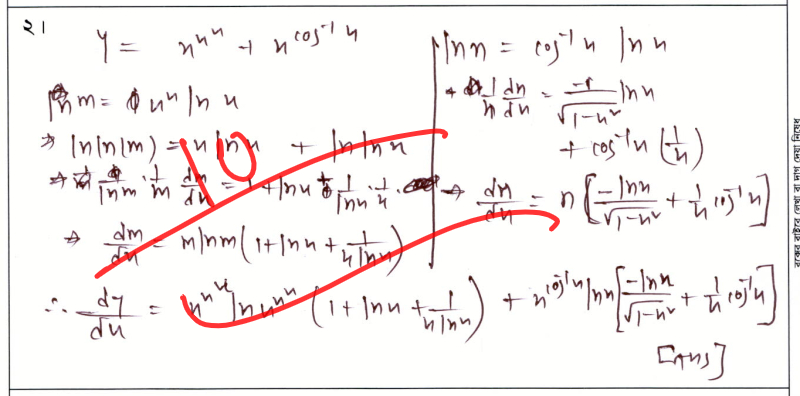 ২১
y = x^{x^x} + x^{cos^{-1} x}
ln m = x^x ln x
⇒ ln(ln m) = x ln x + ln ln x
⇒ \frac{1}{ln m} · \frac{1}{m} \frac{dm}{dx} = 1 + ln x + \frac{1}{ln x} · \frac{1}{x}
⇒ \frac{dm}{dx} = m ln m (1 + ln x + \frac{1}{x ln x})
ln n = cos^{-1} x ln x
\frac{1}{n} \frac{dn}{dx} = \frac{-1}{\sqrt{1-x^2}} ln x
+ cos^{-1} x (\frac{1}{x})
⇒ \frac{dn}{dx} = n [\frac{-ln x}{\sqrt{1-x^2}} + \frac{1}{x} cos^{-1} x]
∴ \frac{dy}{dx} = x^{x^x} ln x^{x^x} (1 + ln x + \frac{1}{x ln x}) + x^{cos^{-1} x} ln x [\frac{-ln x}{\sqrt{1-x^2}} + \frac{1}{x} cos^{-1} x]
[Ans]
10
বক্সের বাইরে লেখা বা দাগ দেয়া নিষেধ